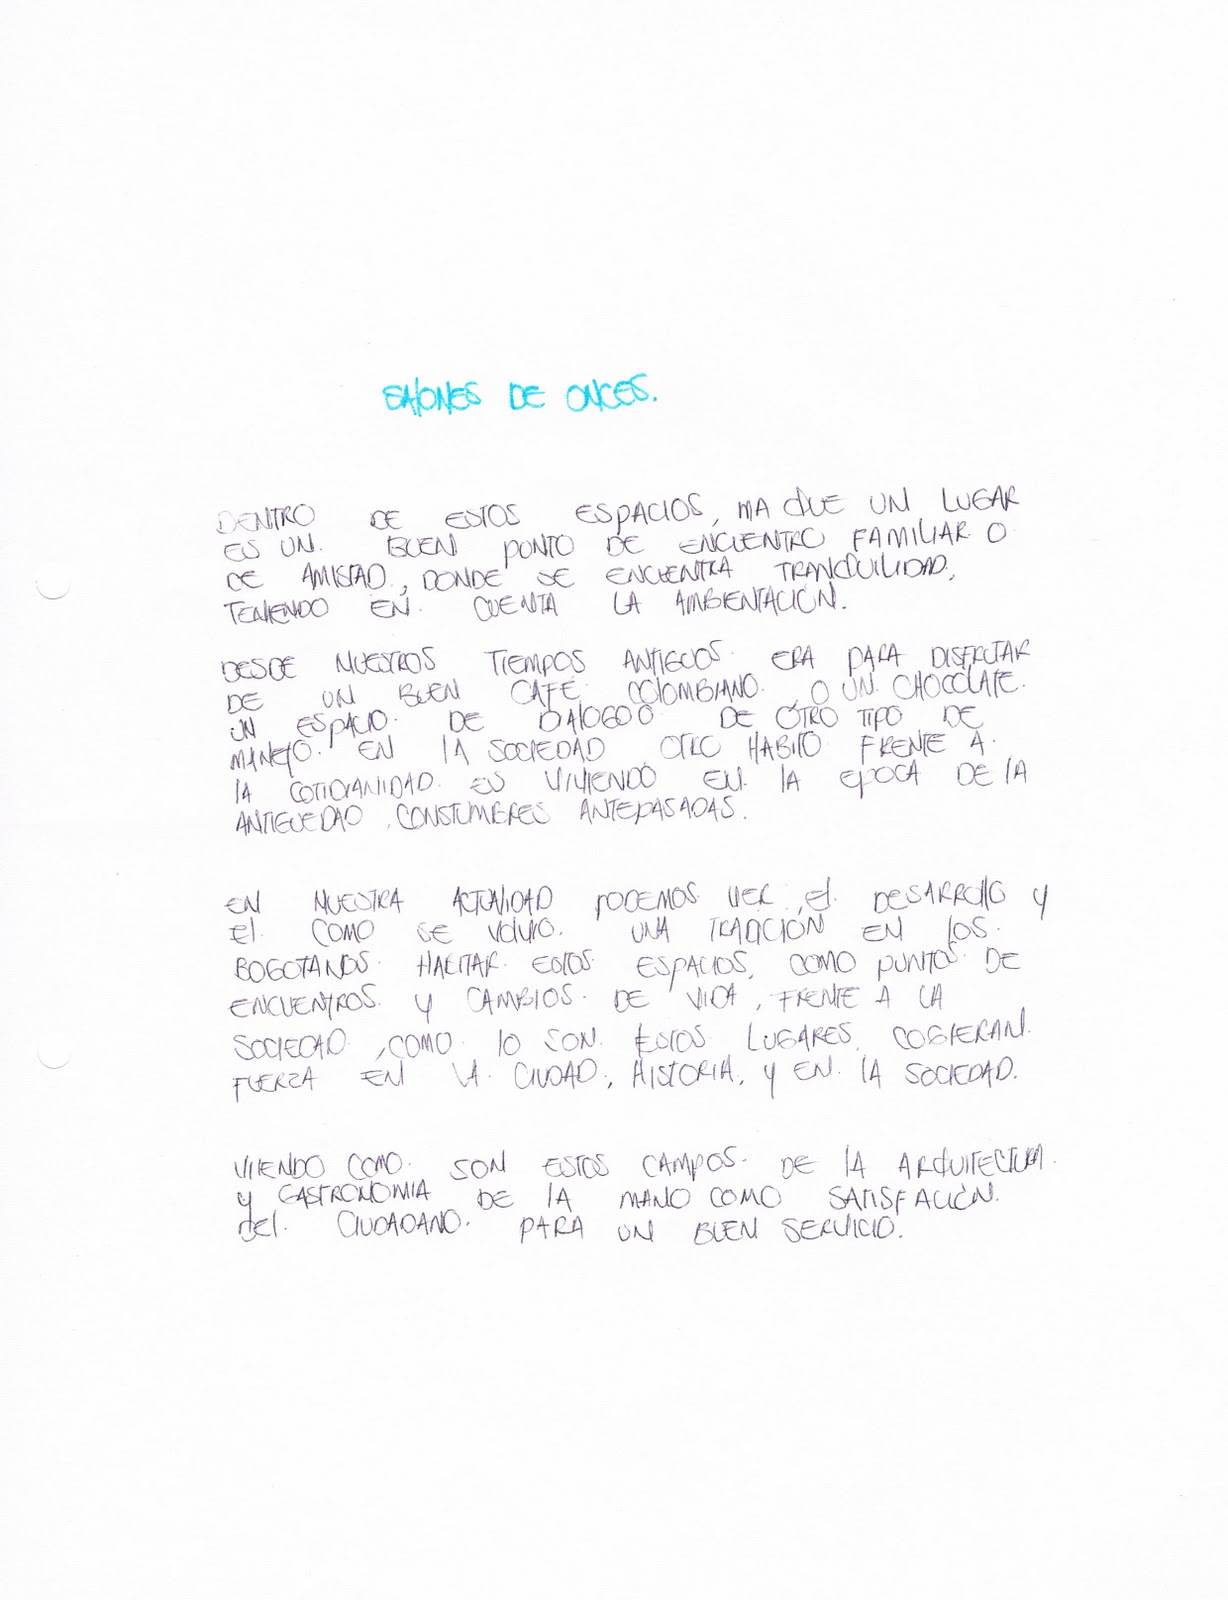 SALONES DE ONCES.
DENTRO DE ESTOS ESPACIOS, MA QUE UN LUGAR
ES UN. BUEN PUNTO DE ENCUENTRO FAMILIAR O
DE AMISTAD, DONDE SE ENCUENTRA TRANQUILIDAD,
TENIENDO EN. CUENTA LA AMBIENTACIÓN.
DESDE NUESTROS TIEMPOS ANTIGUOS. ERA PARA DISFRUTAR
DE UN BUEN CAFE COLOMBIANO. O UN. CHOCOLATE.
UN ESPACIO. DE DIALOGO O DE OTRO TIPO DE
MANEJO. EN LA SOCIEDAD OTRO HABITO FRENTE A.
LA COTIDIANIDAD. ES VIVIENDO EN. LA EPOCA DE LA
ANTIGUEDAD, CONSTUMBRES ANTEPASADAS.
EN NUESTRA ACTUALIDAD PODEMOS VER, El. DESARROLLO Y
El. COMO SE VOLVIO. UNA TRADICIÓN EN LOS.
BOGOTANOS. HABITAR. ESTOS ESPACIOS, COMO PUNTOS DE
ENCUENTROS. Y CAMBIOS. DE VIDA, FRENTE A LA
SOCIEDAD, COMO. LO SON. ESTOS LUGARES. COGIERAN.
FUERZA EN LA. CIUDAD, HISTORIA, Y EN. LA SOCIEDAD.
VIIENDO COMO. SON ESTOS CAMPOS. DE LA ARQUITECTURA.
Y GASTRONOMIA DE LA MANO COMO SATISFACIÓN.
del. CIUDADANO. PARA UN BUEN SERVICIO.